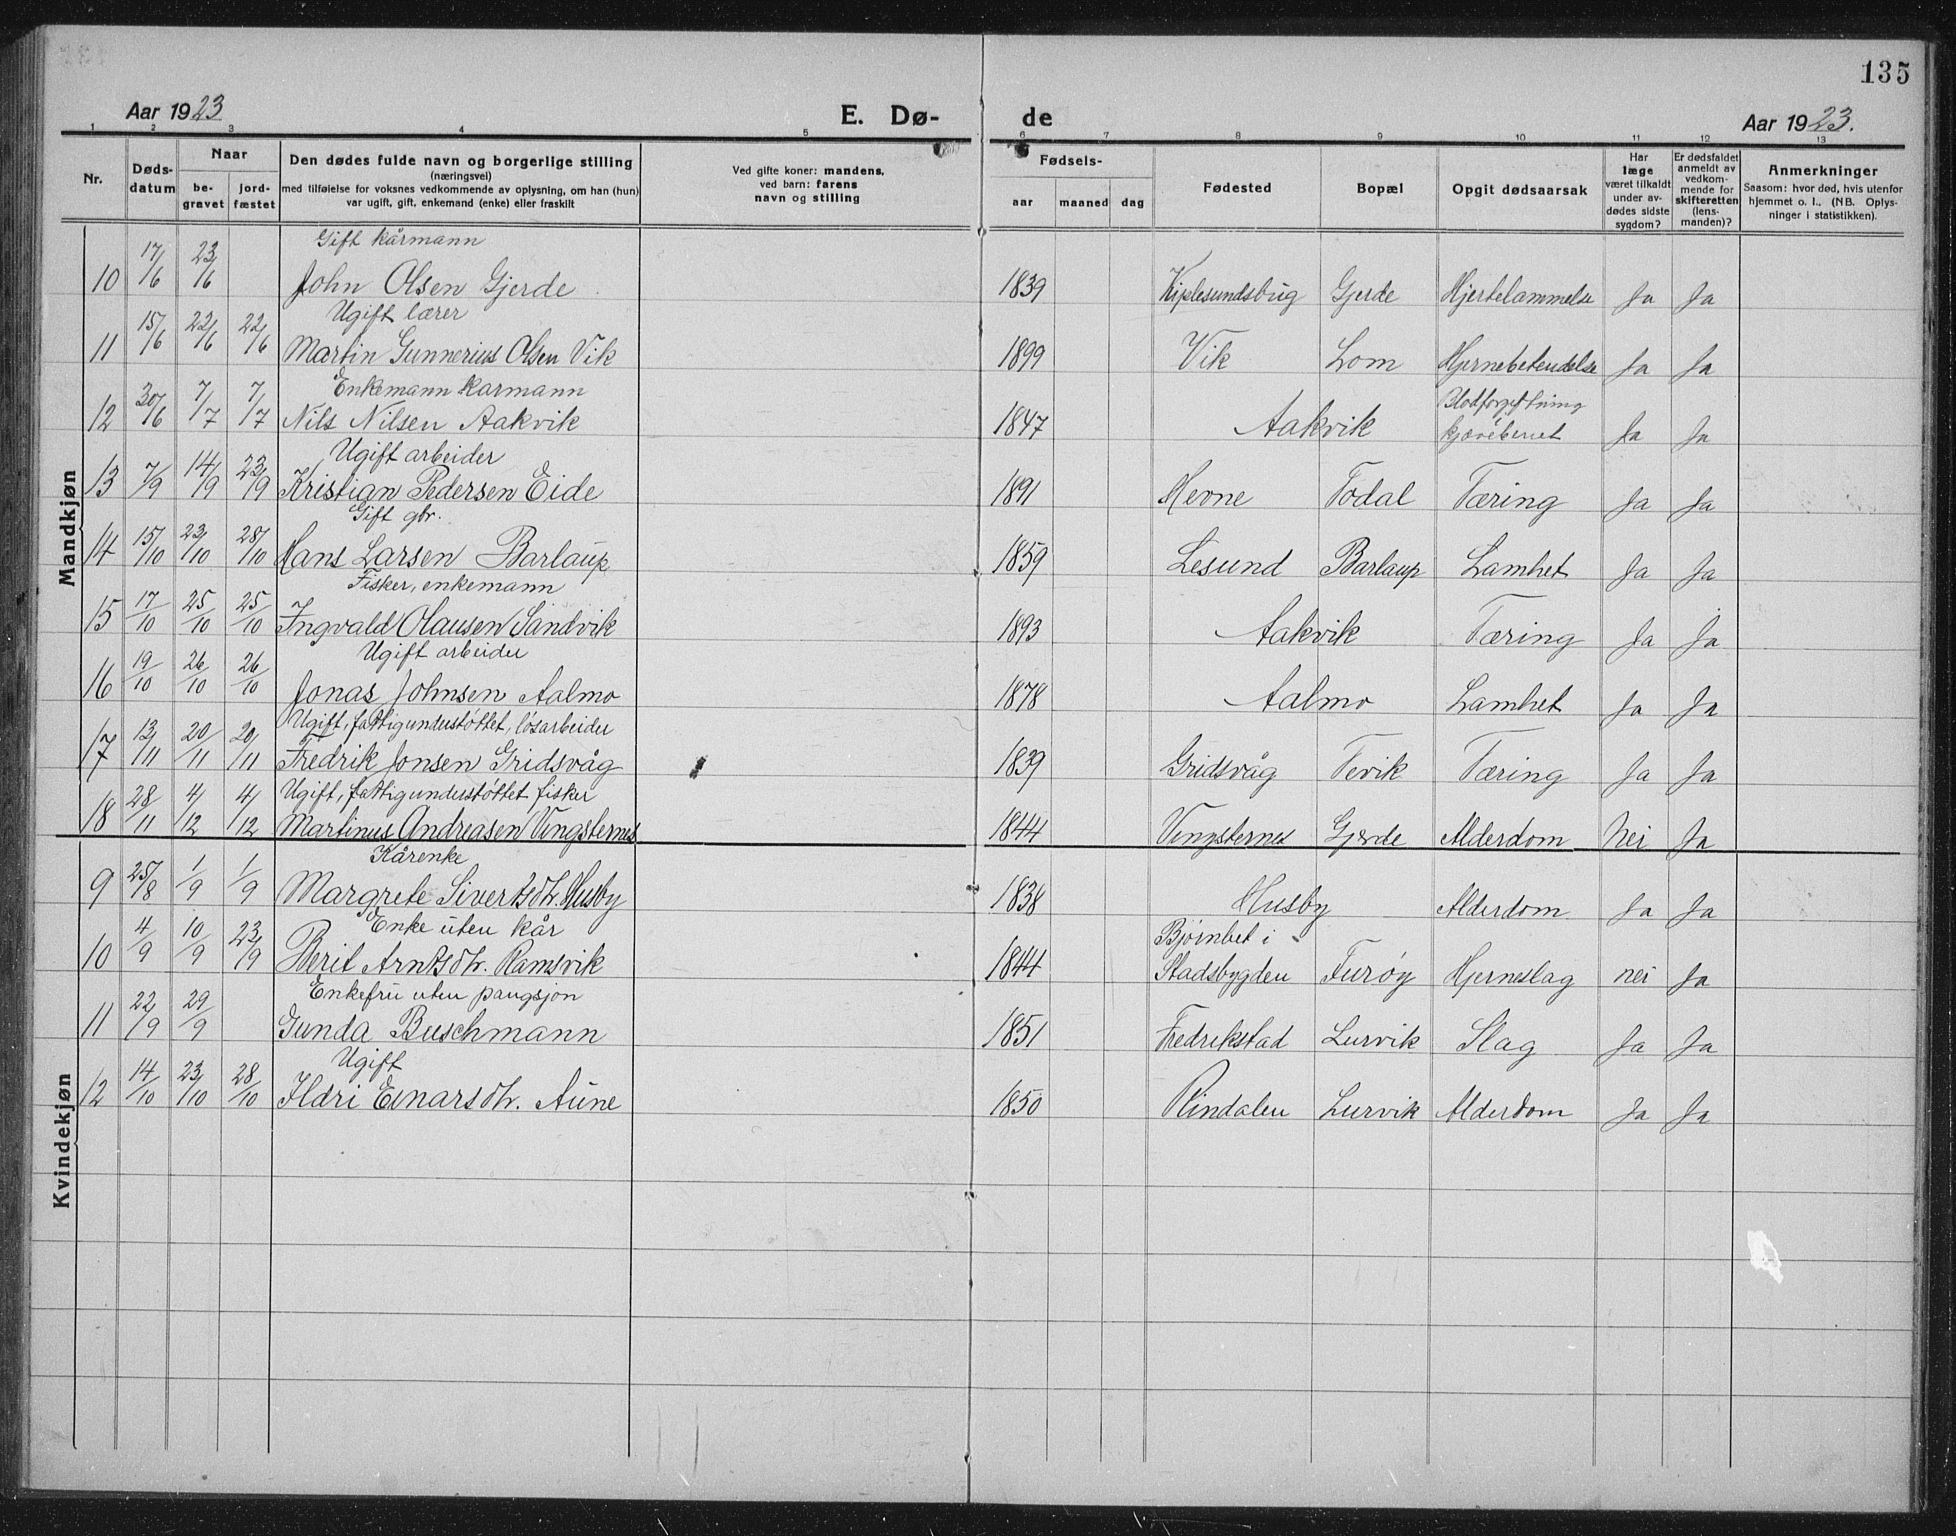 135
Aar 1923
E. Dø-
de
Aar 1923.
1 2 3 4 5 6 7 8 9 10 11 12 13
Nr.
Døds-
datum
Naar
be-
gravet
jord-
fæstet
Den dødes fulde navn og borgerlige stilling
(næringsvei)
med tilføielse for voksnes vedkommende av oplysning, om han (hun)
var ugift, gift, enkemand (enke) eller fraskilt
Ved gifte koner: mandens,
ved barn: farens
navn og stilling
Fødsels-
aar maaned dag
Fødested
Bopæl
Opgit dødsaarsak
Har
læge
været tilkaldt
under av-
dødes sidste
sygdom?
Er dødsfaldet
anmeldt av
vedkom-
mende for
skifteretten
(lens-
manden)?
Anmerkninger
Saasom: hvor død, hvis utenfor
hjemmet o. l., (NB. Oplys-
ninger i statistikken).
Mandkjøn
Gift kårmann
10 17/6 23/6 John Olsen Gjerde 1839 Gjerde Hjertelammelse Ja Ja
Ugift lærer
11 15/6 22/6 22/6 Martin Gunnerius Olsen Vik 1899 Vik Lom Hjernebetendelse Ja Ja
Enkemann karmann
12 30/6 7/7 7/7 Nils Nilsen Aakvik 1847 Aakvik Blodforgiftning
Ja Ja
Ugift arbeider
13 7/9 14/9 23/9 Kristian Pedersen Eide 1891 Hevne Todal Tæring Ja Ja
Gift gbr.
14 15/10 23/10 28/10 Hans Larsen Barlaup 1859 Lesund Barlaup Lamhet Ja Ja
Fisker, enkemann
15 17/10 25/10 25/10 Ingvald Olausen Sandvik 1893 Aakvik Tæring Ja Ja
Ugift arbeider
16 19/10 26/10 26/10 Jonas Johnsen Aalmo 1878 Aalmo Lamhet Ja Ja
Ugift, fattigunderstøttet, løsarbeider
17 13/11 20/11 20/11 Fredrik Jonsen Gridsvåg 1839 Gridsvåg Tevik Tæring Ja Ja
Ugift, fattigunderstøttet fisker
18 28/11 4/12 4/12 Martinus Andreasen Vingsternes 1844 Vingsternes Gjerde Alderdom Nei Ja
Kvindekjøn
Kårenke
9 25/8 1/9 1/9 Margrete Sivertsdtr. Husby 1838 Husby Alderdom Ja Ja
Enke uten kår
Bjørnbet i
10 4/9 10/9 23/9 Berit Arntsdtr. Ramsvik 1844 Stadsbygden Furøy Hjerneslag nei Ja
Enkefru uten pangsjon
11 22/9 29/9 Gunda Buschmann 1851 Fredrikstad Lurvik Slag Ja Ja
Ugift
12 14/10 23/10 28/10 Ildri Einarsdtr. Aune 1850 Rindalen Lurvik Alderdom Ja Ja